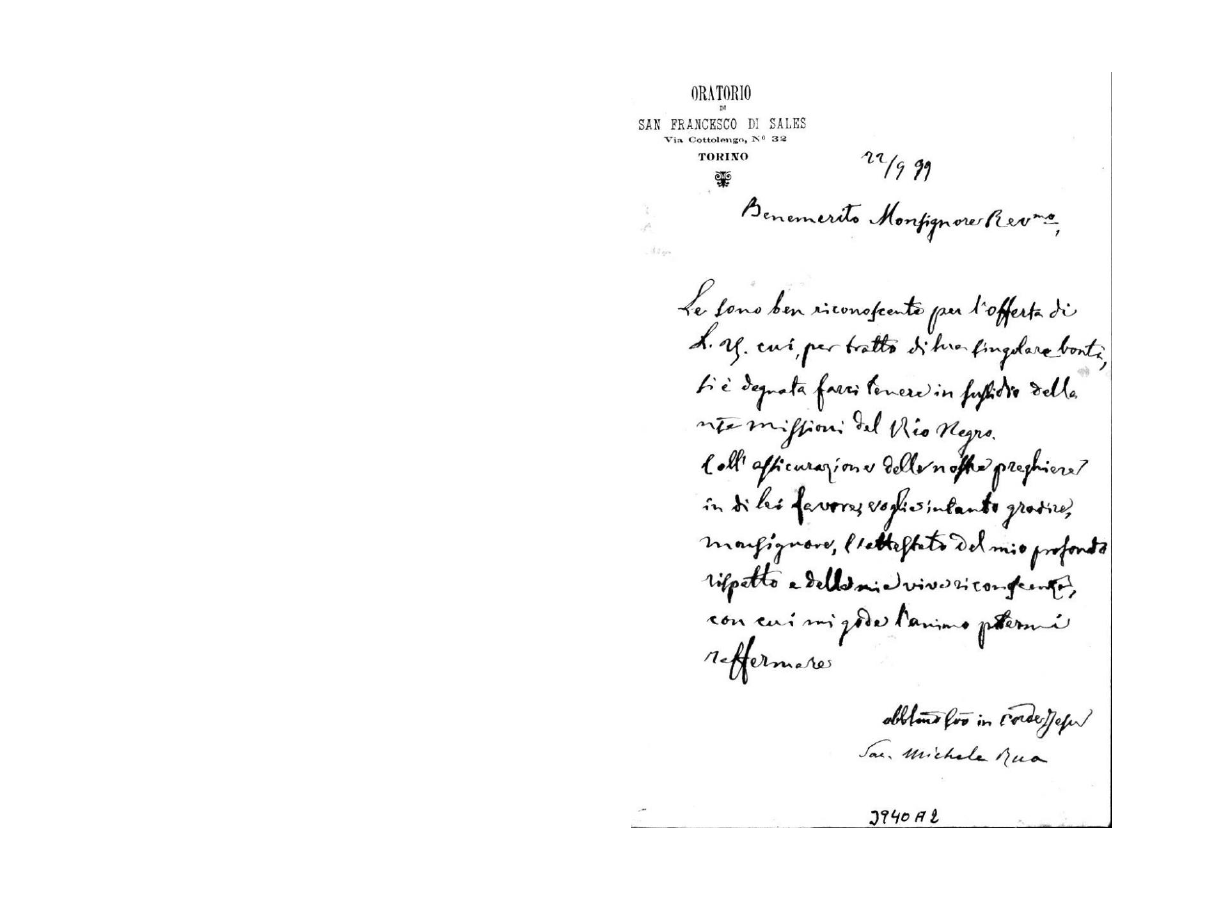 ORATORIO
DI
SAN FRANCESCO DI SALES
Via Cottolengo, Nº 32
TORINO
22/9 99
Benemerito Monsignore Rev.mo,
Le sono ben riconoscente per l'offerta di
L. cui, per tratto di sua singolare bontà,
si è degnata farci tenere in sussidio delle
nte missioni del Rio Negro.
Coll'assicurazione delle nostre preghiere
in di lei favore, voglia intanto gradire,
monsignore, l'attestato del mio profondo
rispetto e della mia viva riconoscenza,
con cui mi gode l'animo potermi
raffermare
in Corde Jesu
Sac. Michele Rua
J940A2